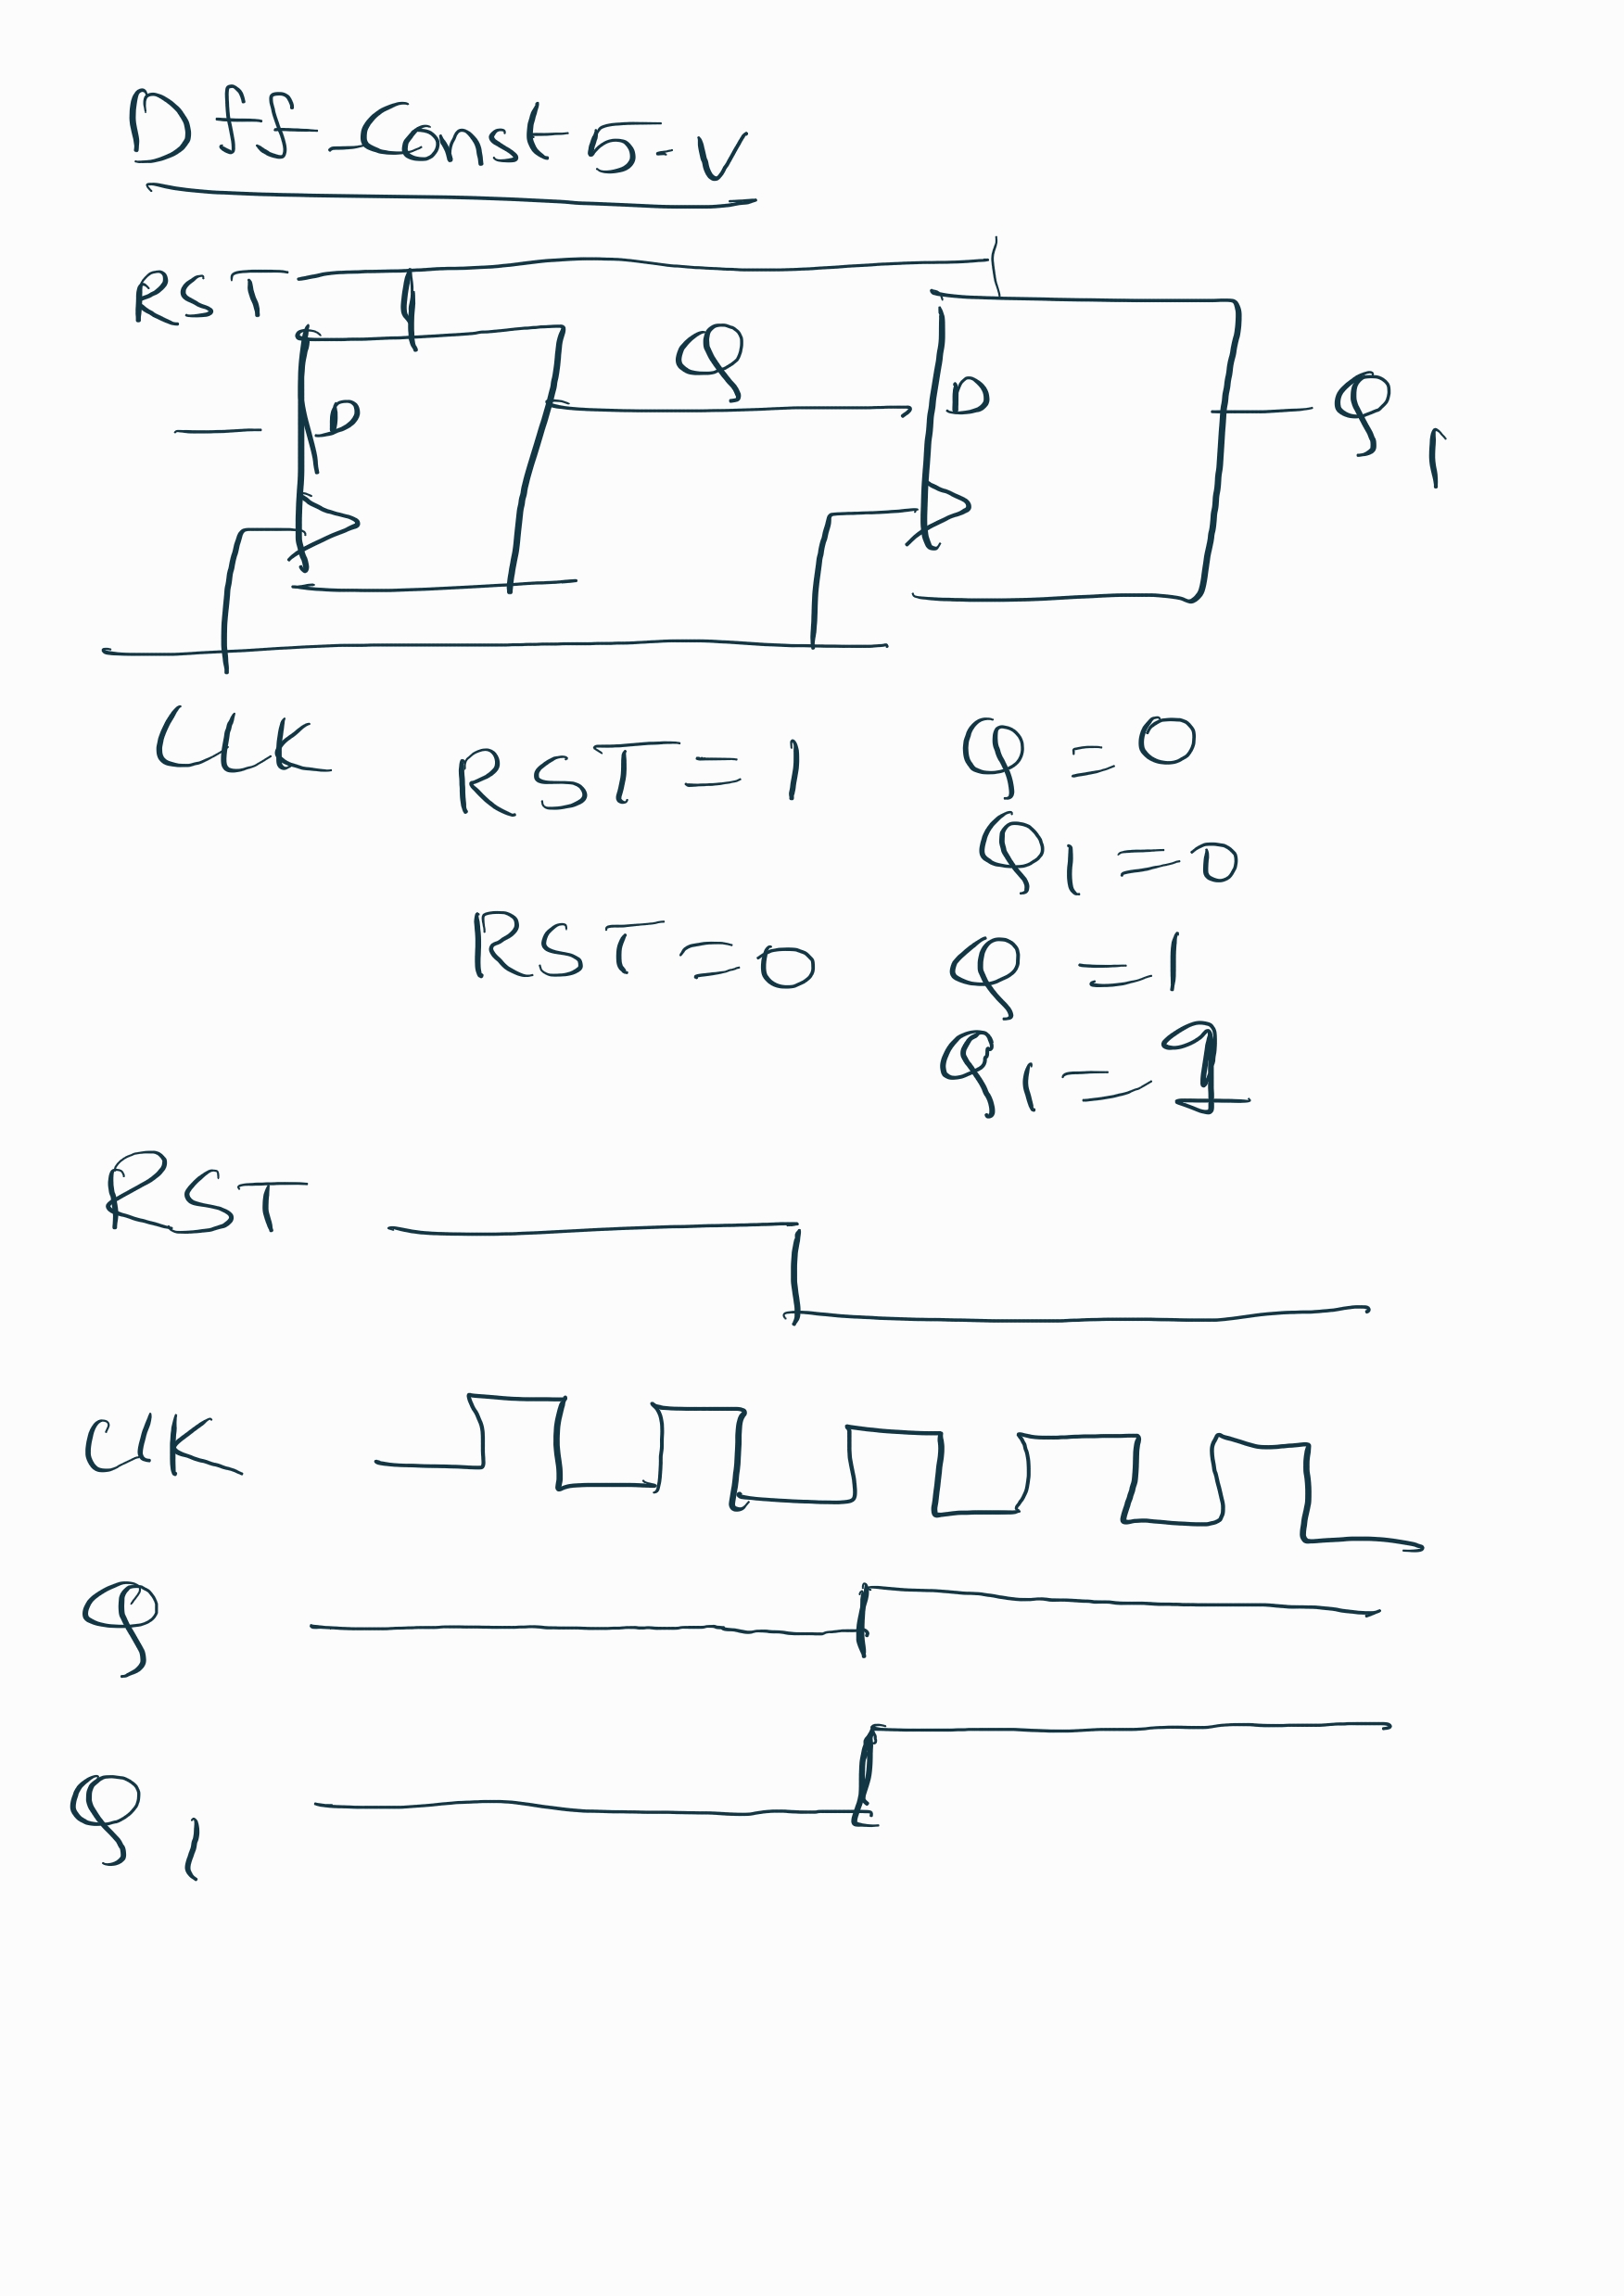 Dff-Const5-v
RST
Q
D
D
Q1
Clk
RST=1 Q=0
Q1=0
RST=0 Q=1
Q1=1
RST
Clk
Q
Q1